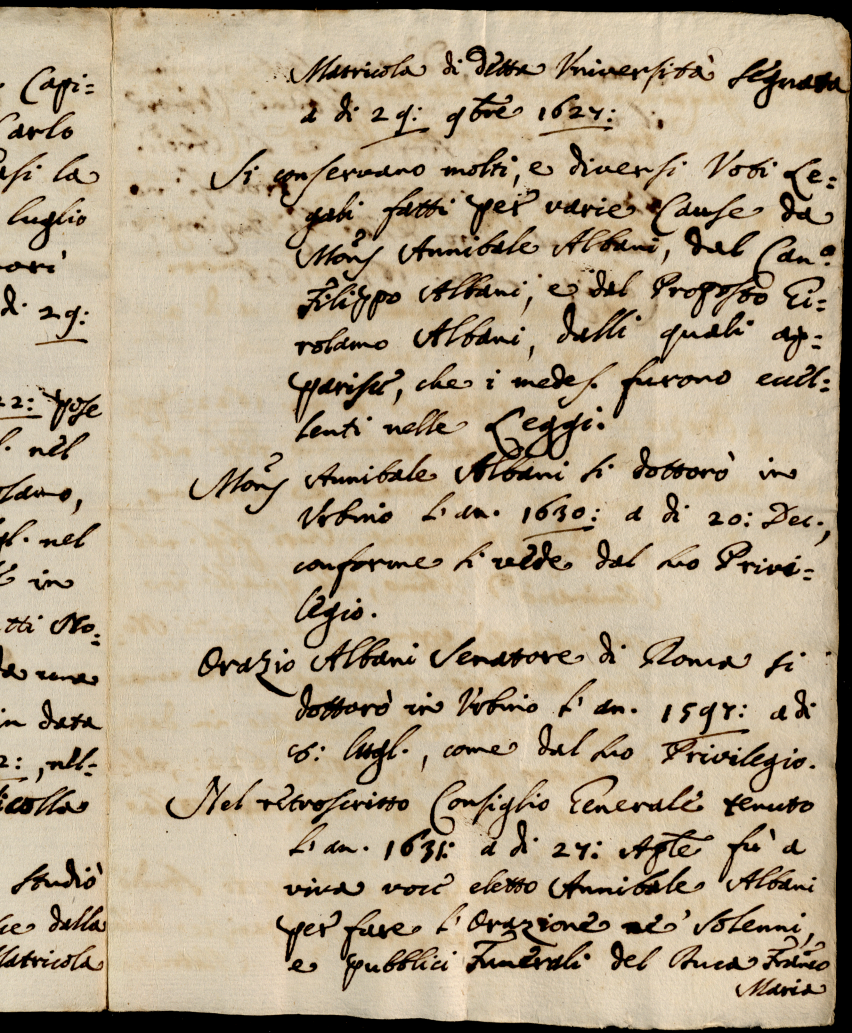 Capi=
Carlo
asi la
luglio
di 29:
22: pose
nel
nel
in
tti No=
da una
in data
2:, nel=
icolla
studiò
ce dalla
Matricola
Matricola di detta Vniversità segnata
a di 29: 9bre 1627:
Si conservano molti, e diversi Voti Le=
gali fatti per varie Cause da
Mons Annibale Albani, dal Can.º
Filippo Albani, e dal Proposto Gi=
rolamo Albani, dalli quali ap=
parisce, che i medes. furono eccel=
lenti nelle Leggi.
Mons Annibale Albani si dottorò in
Vrbino l'an. 1630: a di 20: Dec.,
conforme si vede dal suo Privi=
legio.
Orazio Albani Senatore di Roma si
dottorò in Vrbino l'an. 1597: a di
6: lugl., come dal suo Privilegio.
Nel retroscritto Consiglio Generale tenuto
l'an. 1631: a di 27: Aple fù a
viva voce eletto Annibale Albani
per fare l'Orazione ne' Solenni,
e pubblici Funerali del Duca Franco
Maria